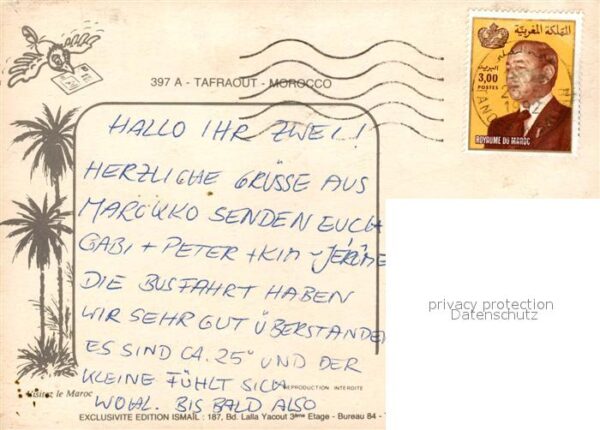 المملكة المغربية
البريد
3,00
POSTES
ROYAUME DU MAROC
397 A - TAFRAOUT - MOROCCO
HALLO IHR ZWEI!
HERZLICHE GRÜSSE AUS
MAROKKO SENDEN EUCH
GABI + PETER + KIM - JÉRÔME
DIE BUSFAHRT HABEN
WIR SEHR GUT ÜBERSTANDEN
ES SIND CA. 25° UND DER
KLEINE FÜHLT SICH
WOHL. BIS BALD ALSO
privacy protection
Datenschutz
REPRODUCTION INTERDITE
Visitez le Maroc
EXCLUSIVITE EDITION ISMAÏL : 187, Bd. Lalla Yacout 3ème Etage - Bureau 84 -